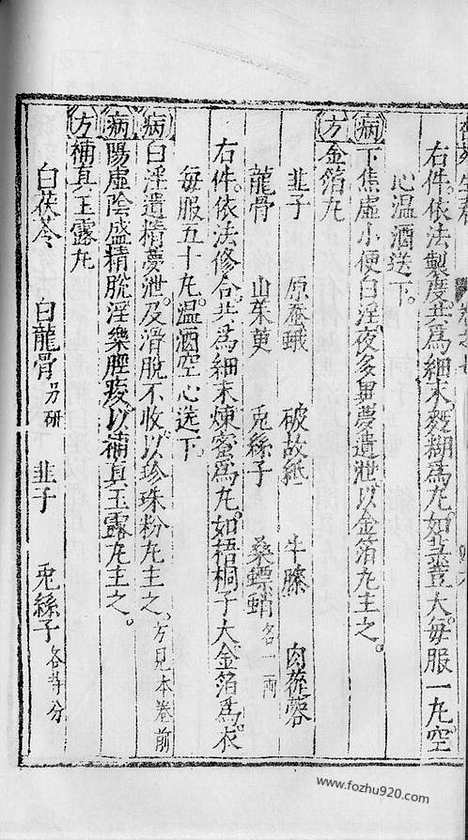 右件。依法製度。共為細末。麵糊為丸。如梧豆大。每服一丸。空
心溫酒送下。
病 下焦虛小便白淫。夜多異夢遺泄。以金箔丸主之。
方 金箔丸
韭子 原蚕蛾 破故紙 牛膝 肉蓯蓉
龍骨 山茱萸 兎絲子 桑螵蛸各一両
右件。依法修合。共為細末。煉蜜為丸。如梧桐子大。金箔為衣
每服五十丸。溫酒空心送下。
病 白淫遺精夢泄。及滑脫不收。以珍珠粉丸主之。方見本卷前
病 陽虛陰盛精脫淫樂脛痠。以補真玉露丸主之。
方 補真玉露丸
白茯苓 白龍骨另研 韭子 兎絲子各等分
www.fozhu920.com